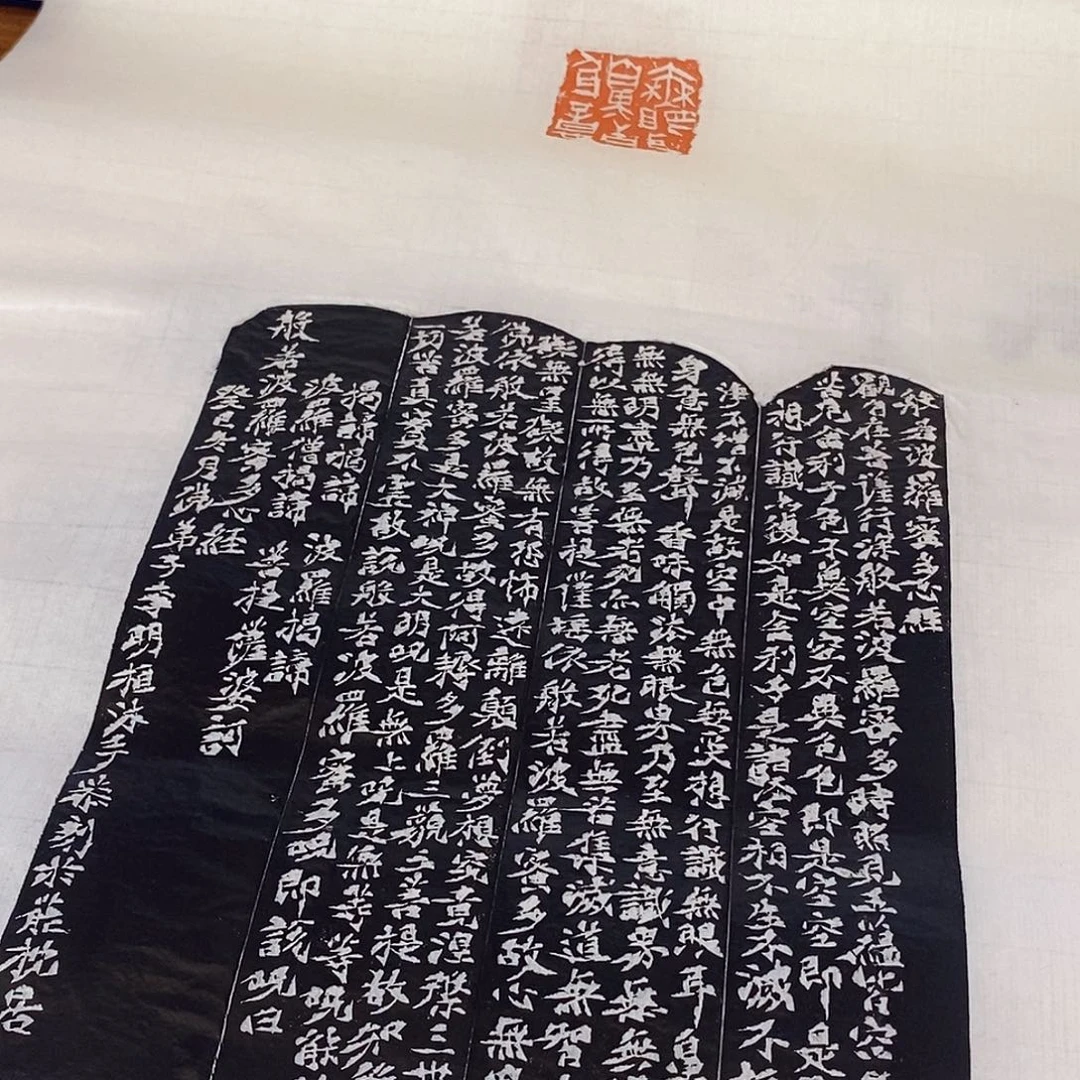 般若波羅蜜多心經
觀自在菩薩行深般若波羅蜜多時照見五蘊皆空
苦厄舍利子色不異空空不異色色即是空空即是
想行識亦復如是舍利子是諸法空相不生不滅不
淨不增不減是故空中無色無受想行識無眼耳鼻
身意無色聲香味觸法無眼界乃至無意識界無無
無無明盡乃至無老死亦無老死盡無苦集滅道無智
得以無所得故菩提薩埵依般若波羅蜜多故心無
礙無罣礙故無有恐怖遠離顛倒夢想究竟涅槃三世
佛依般若波羅蜜多故得阿耨多羅三藐三菩提故知般
若波羅蜜多是大神呪是大明呪是無上呪是無等等呪能
一切苦真實不虛故說般若波羅蜜多呪即說呪曰
揭諦揭諦 波羅揭諦
波羅僧揭諦 菩提薩婆訶
般若波羅蜜多心經
癸巳年月佛弟子李明桓沐手